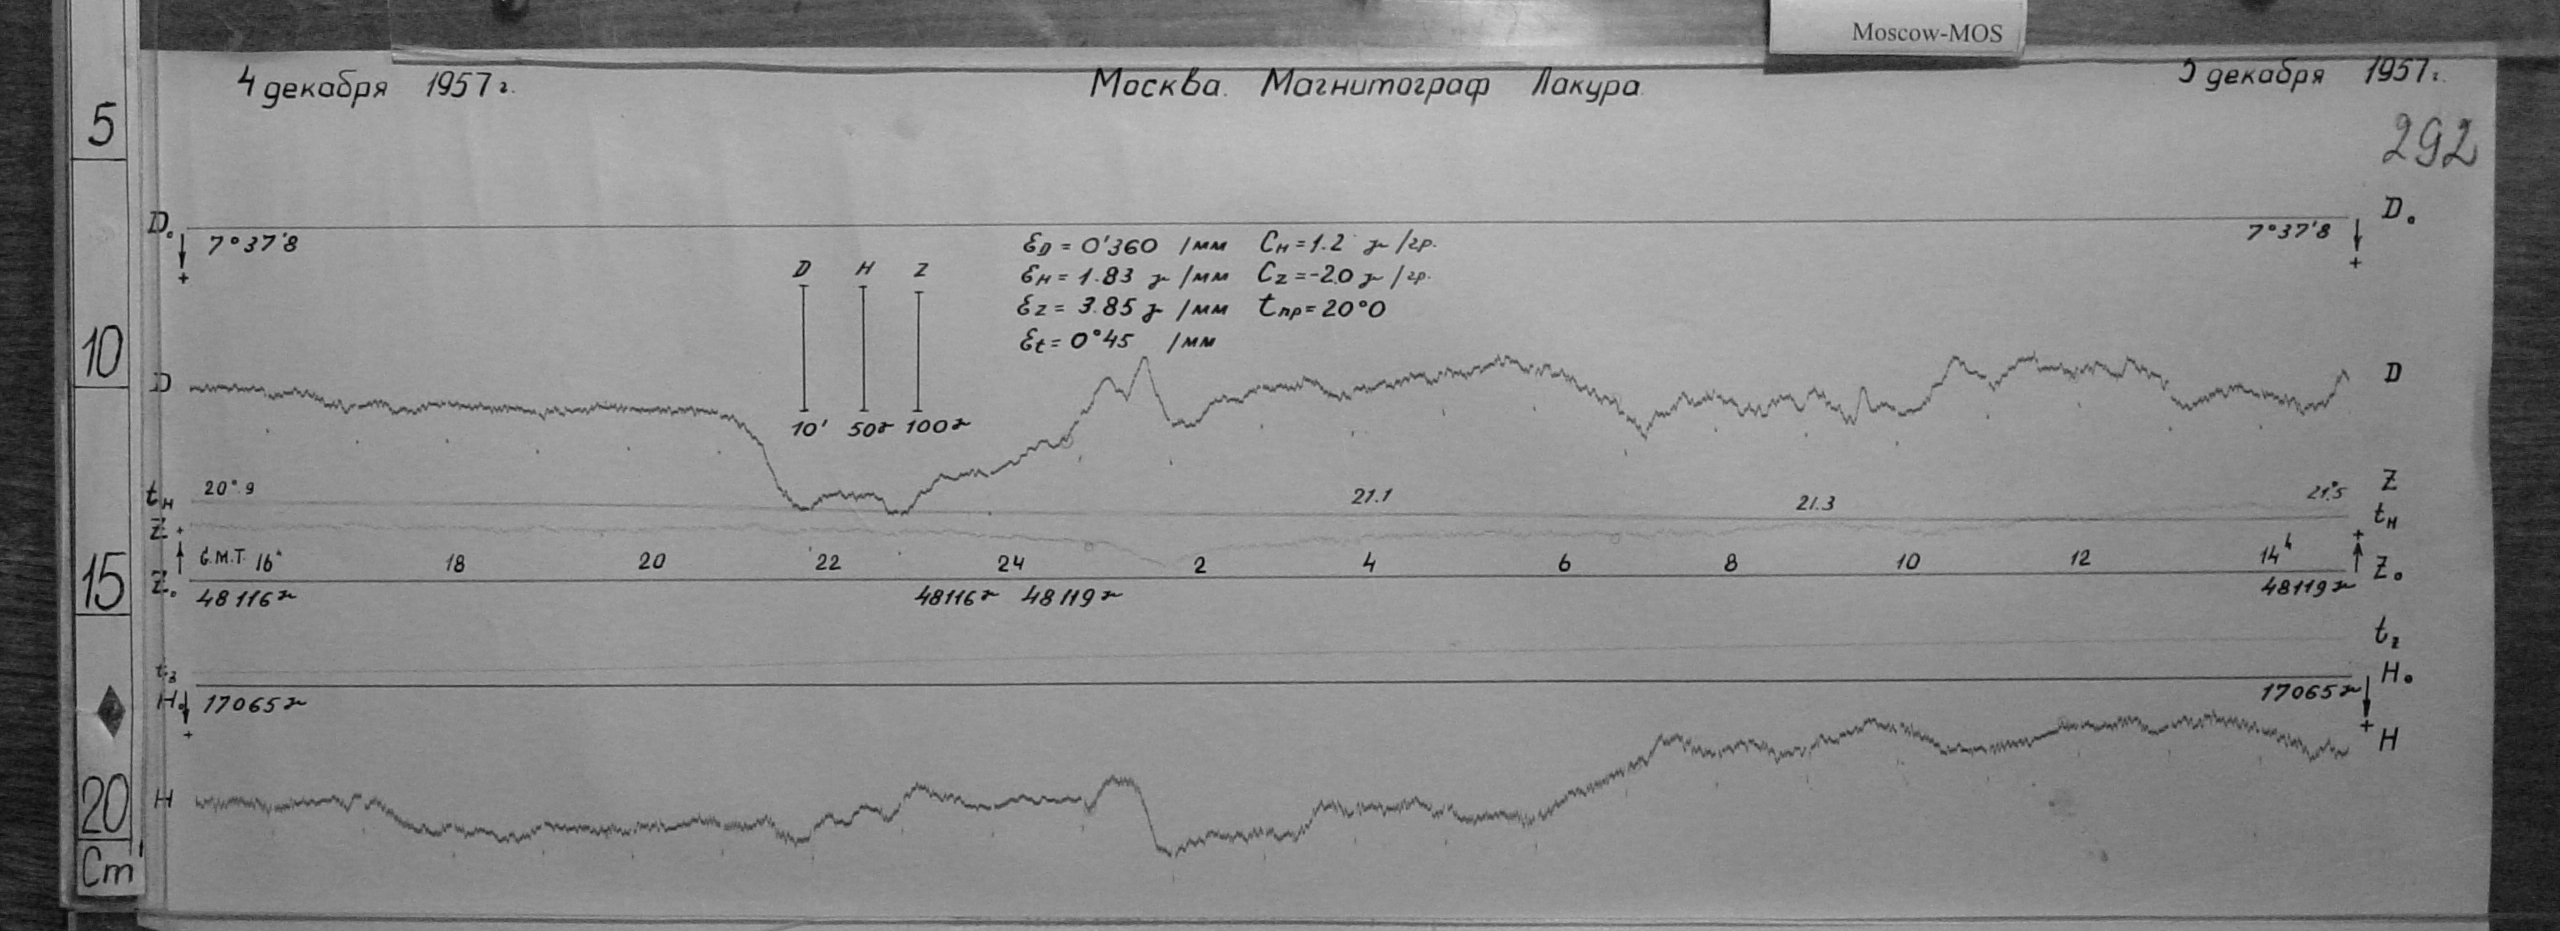 Moscow-MOS
4 декабря 1957г. Москва. Магнитограф Лакура 5 декабря 1957г.
292
5
D₀ D₀
7°37'8 7°37'8
+ +
D H Z
εD = 0'360 /мм CH = 1.2 γ /гр.
εH = 1.83 γ /мм CZ = -2.0 γ /гр.
εZ = 3.85 γ /мм tпр = 20°0
εt = 0°45 /мм
10
D D
10' 50γ 100γ
tH 20°.9 21.1 21.3 21°.5 Z
Z + tH
+
G.M.T. 16ʰ 18 20 22 24 2 4 6 8 10 12 14ʰ
15
Z₀ Z₀
48116γ 48116γ 48119γ 48119γ
tz
H₀ 17065γ 17065γ H₀
+ +
H H
20
Cm